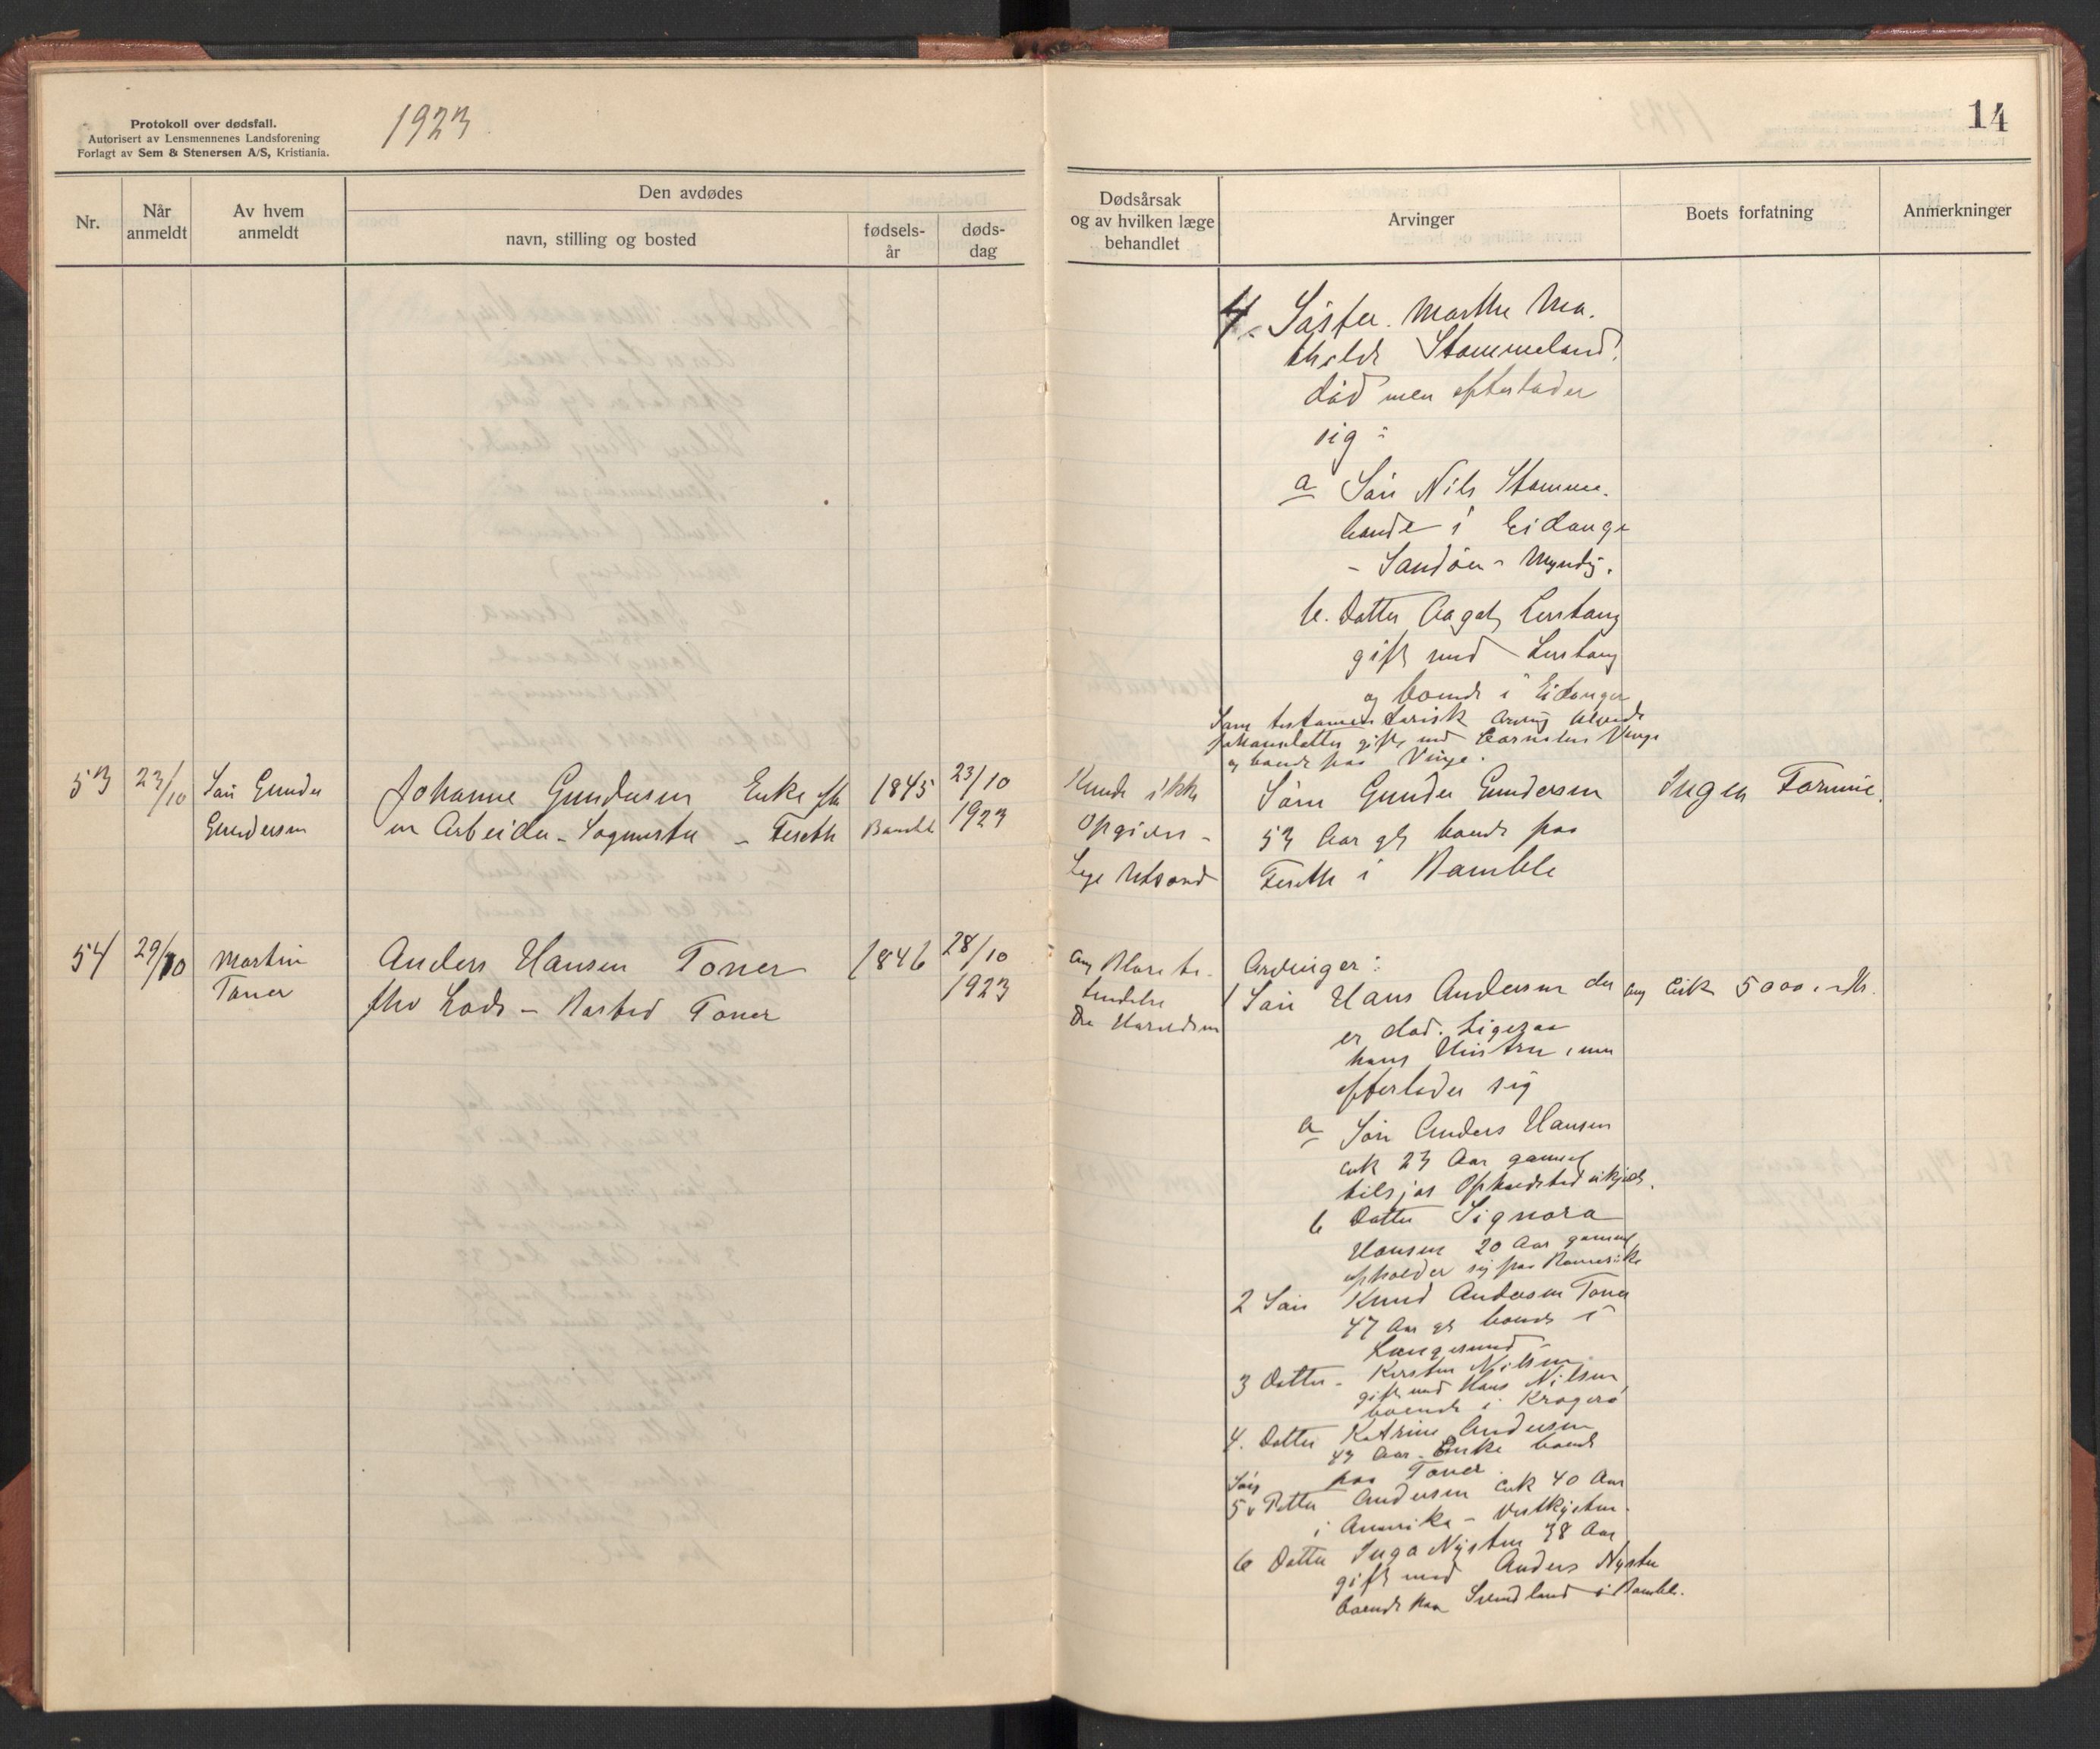 Protokoll over dødsfall.
Autorisert av Lensmennenes Landsforening
Forlagt av Sem & Stenersen A/S, Kristiania.
1923
14
Nr.
Når anmeldt
Av hvem anmeldt
Den avdødes
navn, stilling og bosted
fødsels-år
døds-dag
Dødsårsak og av hvilken læge behandlet
Arvinger
Boets forfatning
Anmerkninger
4. Søster. Marthe Ma.
thilde Stammeland.
död men efterlader
sig:
a Søn Nils Stamme.
lande i Eidange
- Sandöen - Myndig.
b. Datter Aagot Lerstang
gift med Lerstang
og boende i Eidanger
Som testamentarisk Arving
gift med Vinje
og boende paa Vinje.
53
23/10
Søn Gunder
Gundersen
Johanne Gundersen Enke efter
en Arbeider - Sognestu - Feseth
1845
Bamble
23/10
1923
Kunde ikke
Opgives -
Lege
Søn Gunder Gundersen
53 Aar gl boende paa
Feseth i Bamble
Ingen Formue.
54
29/10
Martin
Toner
Anders Hansen Toner
fhv Lods - Bosted Toner
1846
28/10
1923
Ang Blære be-
tendelse
Dr Haraldsen
Arvinger:
1 Søn Hans Andersen der
er död. Ligesaa
hans Hustru, men
efterlader sig
a Søn Anders Hansen
cirk 23 Aar gammel
tilsjøs Opholdsted ukjendt.
b Datter Signora
Hansen 20 Aar gammel
opholder sig paa Romerike
2 Søn Knud Andersen Toner
47 Aar gl boende i
Langesund
3 Datter - Kirsten Nilsen
gift med Hans Nilsen,
boende i Kragerø
4. Datter Katrine Andersen
43 Aar - Enke boende
paa Toner.
Søn
5 Petter Andersen cirk 40 Aar
i Amerika - Vestkysten.
6 Datter Inga Nysten 38 Aar
gift med Anders Nysten
boende paa Svendland i Bamble.
ang Cirk 5000, - Kr.